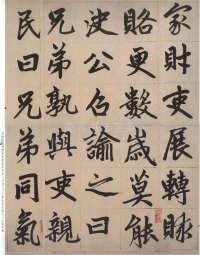 家財吏展轉賕
賂更數歲莫能
決公召諭之曰
兄弟孰與吏親
民曰兄弟同氣